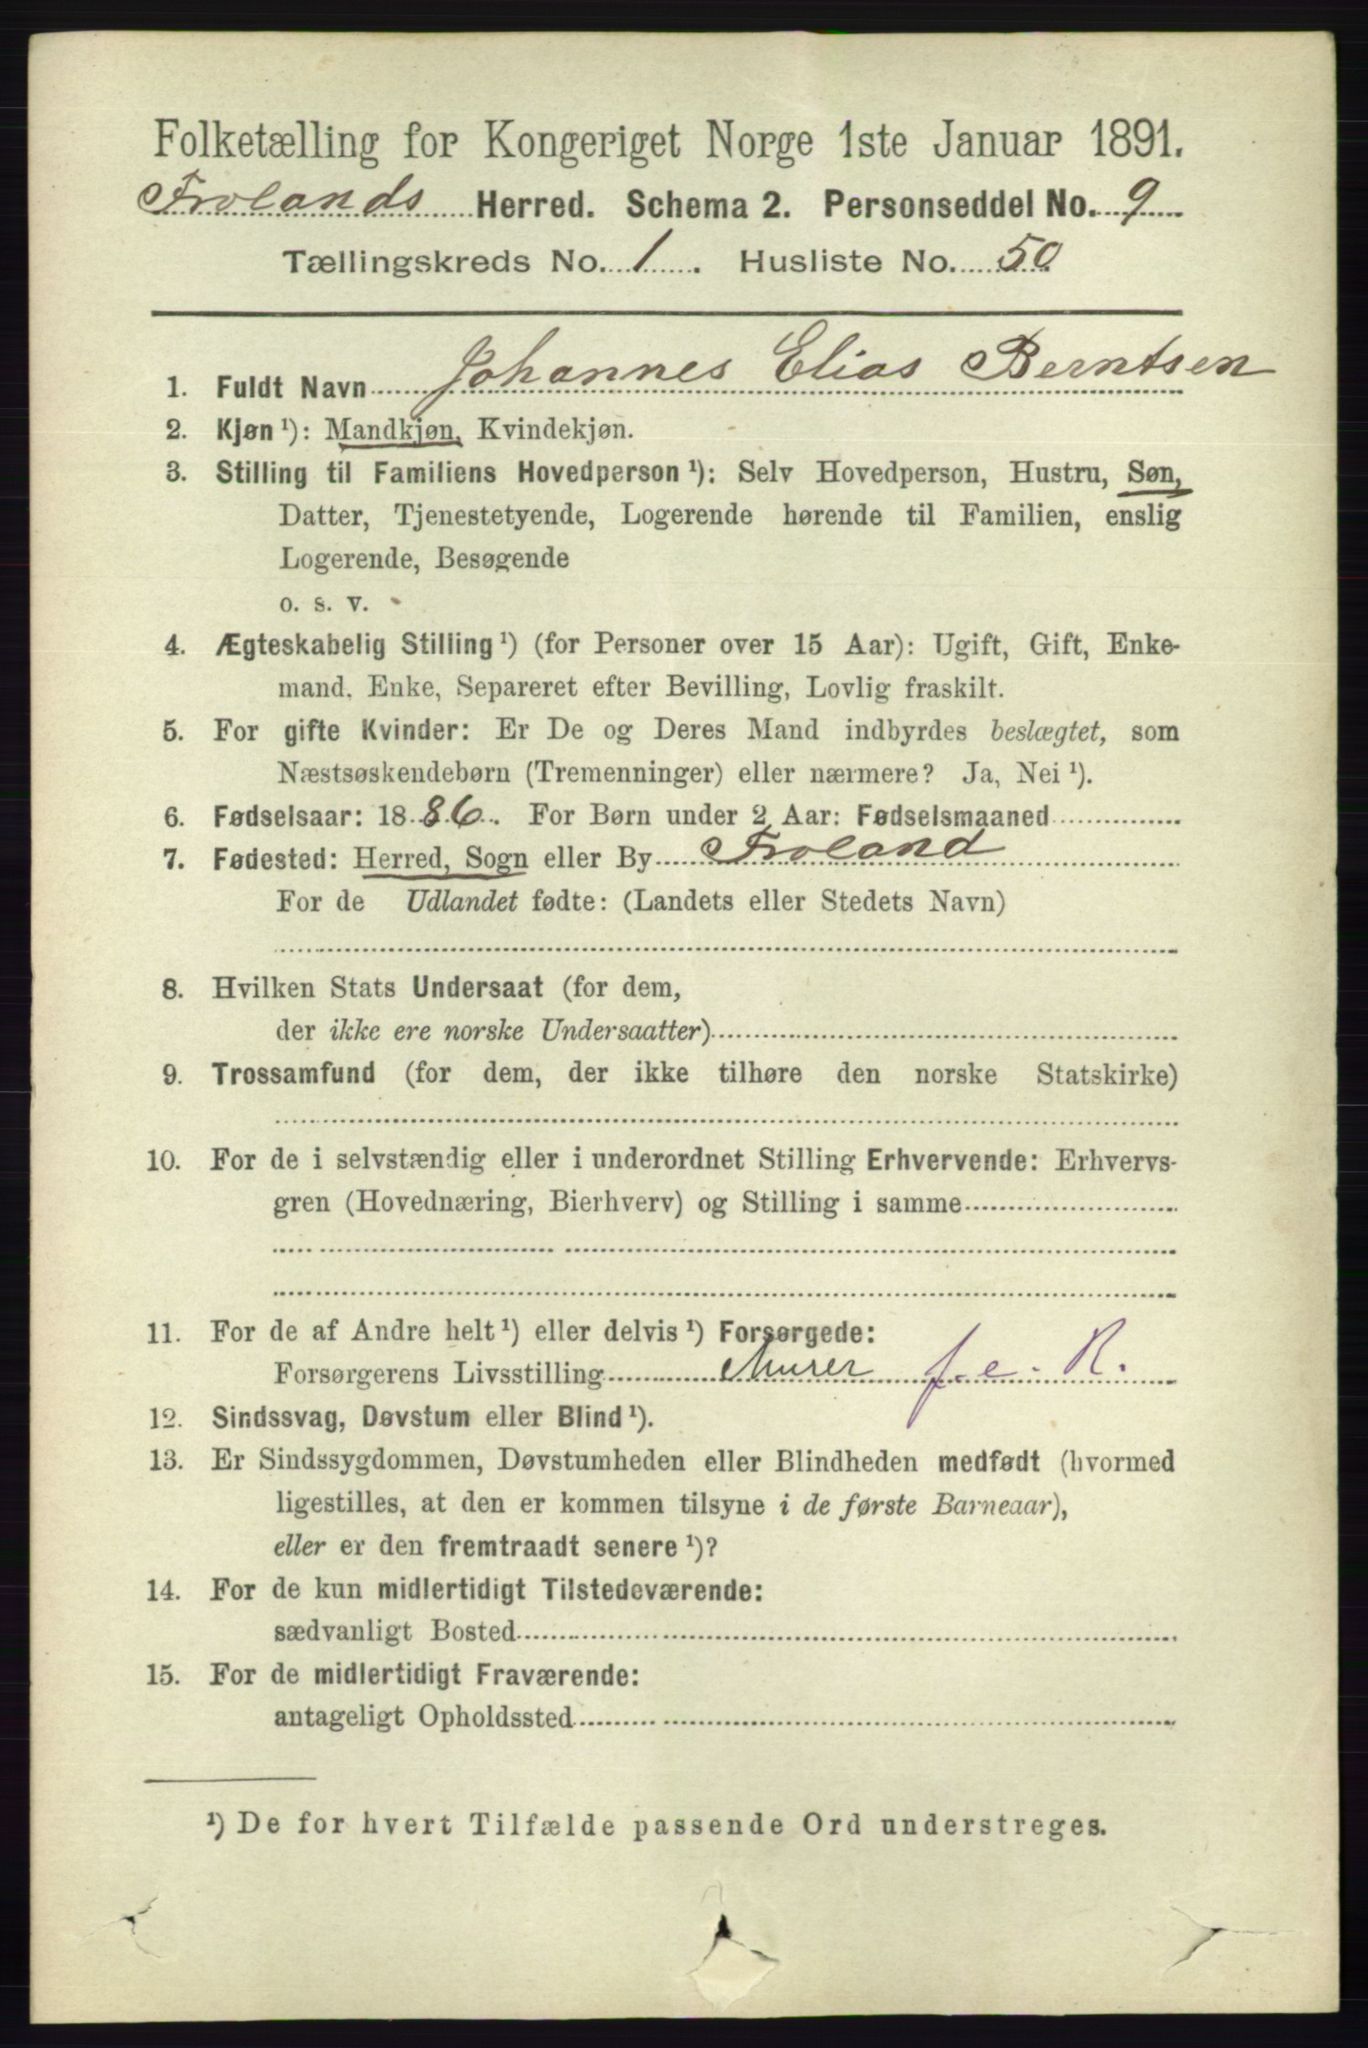 Folketælling for Kongeriget Norge 1ste Januar 1891.
Frolands Herred. Schema 2. Personseddel No. 9
Tællingskreds No. 1. Husliste No. 50
1. Fuldt Navn Johannes Elias Berntsen
2. Kjøn ¹): Mandkjøn, Kvindekjøn.
3. Stilling til Familiens Hovedperson ¹): Selv Hovedperson, Hustru, Søn,
Datter, Tjenestetyende, Logerende hørende til Familien, enslig
Logerende, Besøgende
o. s. v.
4. Ægteskabelig Stilling ¹) (for Personer over 15 Aar): Ugift, Gift, Enke-
mand, Enke, Separeret efter Bevilling, Lovlig fraskilt.
5. For gifte Kvinder: Er De og Deres Mand indbyrdes beslægtet, som
Næstsøskendebørn (Tremenninger) eller nærmere? Ja, Nei ¹).
6. Fødselsaar: 1886. For Børn under 2 Aar: Fødselsmaaned
7. Fødested: Herred, Sogn eller By Froland
For de Udlandet fødte: (Landets eller Stedets Navn)
8. Hvilken Stats Undersaat (for dem,
der ikke ere norske Undersaatter)
9. Trossamfund (for dem, der ikke tilhøre den norske Statskirke)
10. For de i selvstændig eller i underordnet Stilling Erhvervende: Erhvervs-
gren (Hovednæring, Bierhverv) og Stilling i samme
11. For de af Andre helt ¹) eller delvis ¹) Forsørgede:
Forsørgerens Livsstilling Murer f. e. R.
12. Sindssvag, Døvstum eller Blind ¹).
13. Er Sindssygdommen, Døvstumheden eller Blindheden medfødt (hvormed
ligestilles, at den er kommen tilsyne i de første Barneaar),
eller er den fremtraadt senere ¹)?
14. For de kun midlertidigt Tilstedeværende:
sædvanligt Bosted
15. For de midlertidigt Fraværende:
antageligt Opholdssted
¹) De for hvert Tilfælde passende Ord understreges.